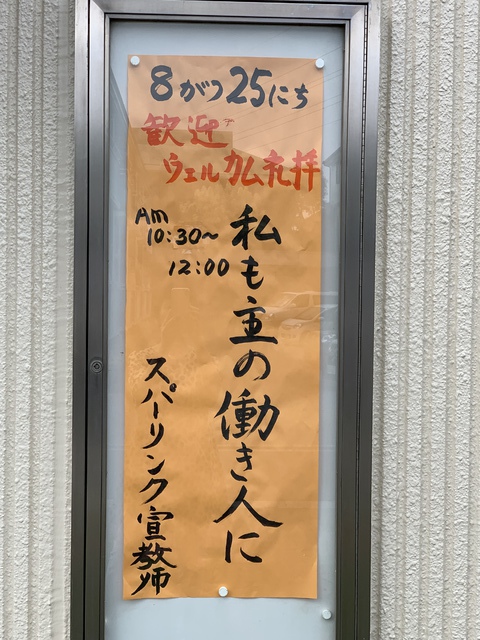 8がつ25にち
歓迎
ウェルカム礼拝
Am
10:30~
12:00
私も主の働き人に
スパーリンク宣教師